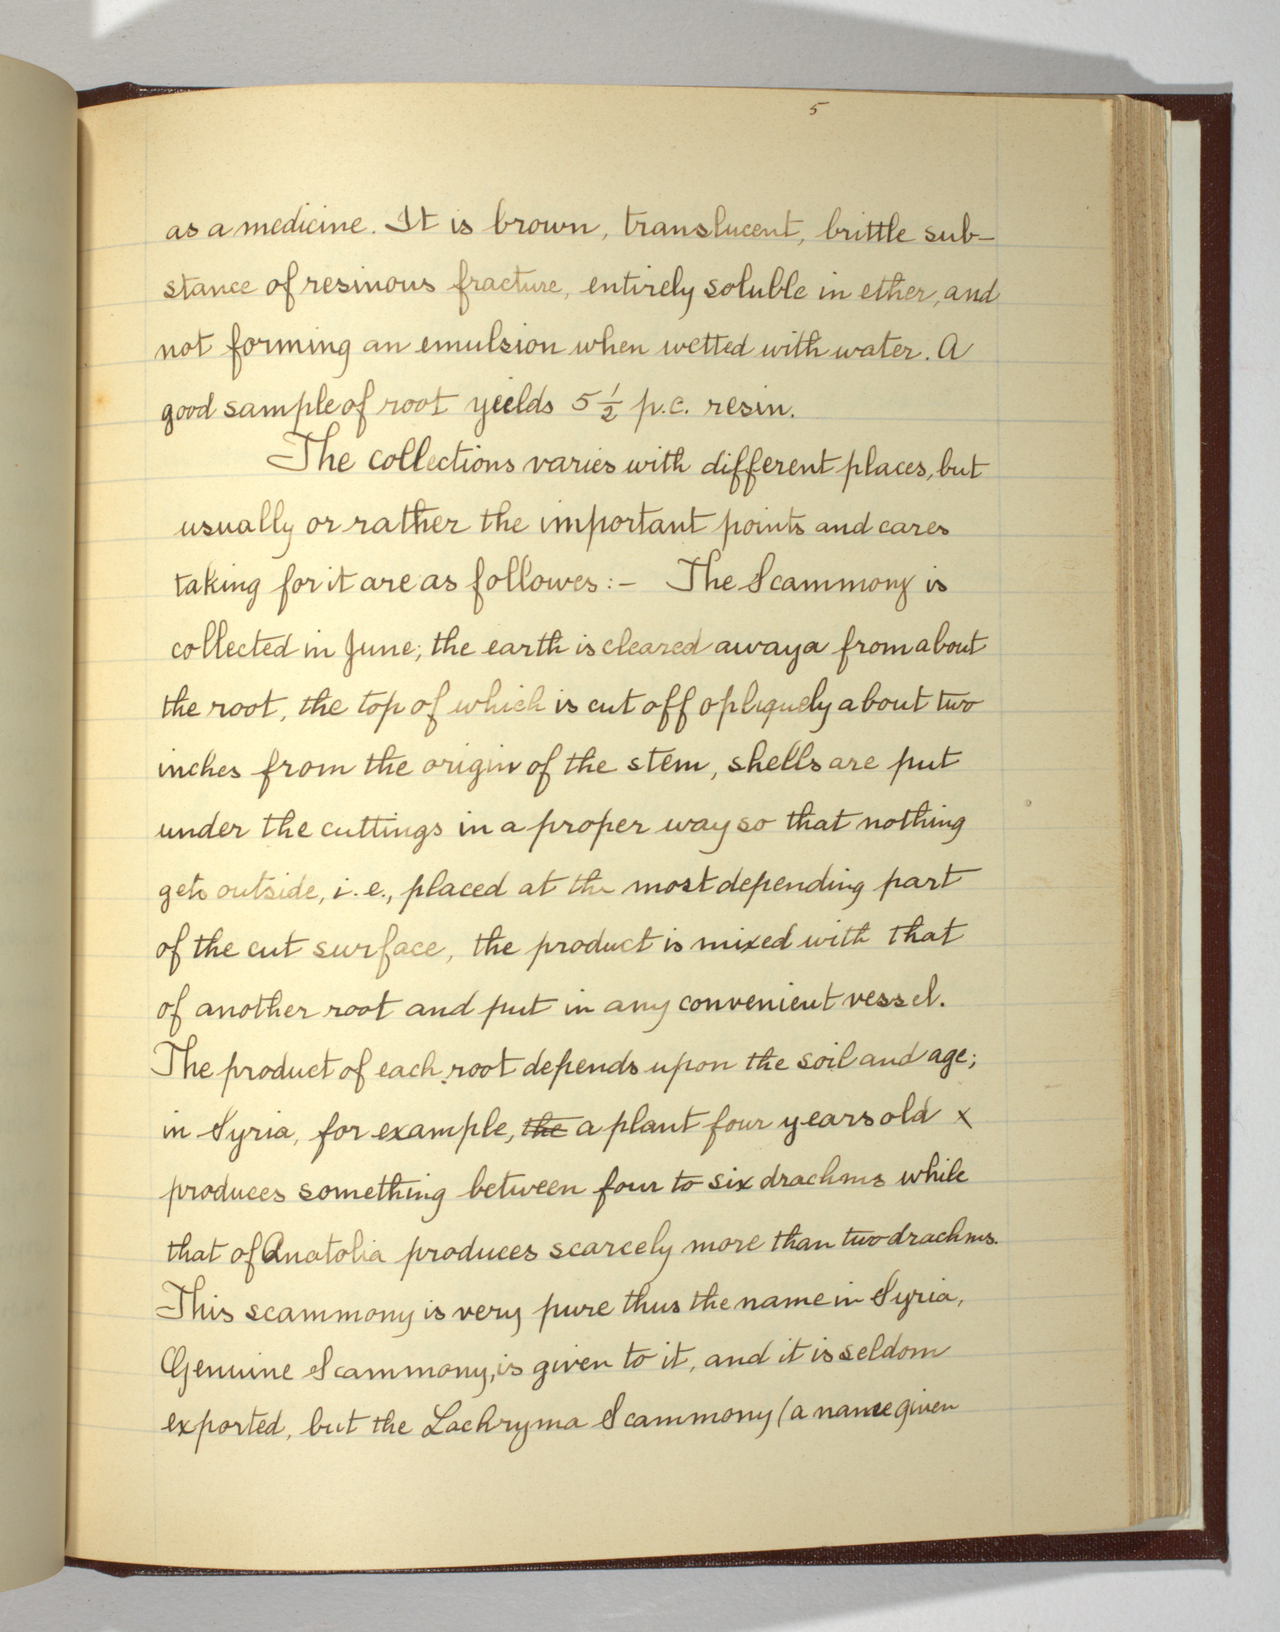 5
as a medicine. It is brown, translucent, brittle sub-
stance of resinous fracture, entirely soluble in ether, and
not forming an emulsion when wetted with water. A
good sample of root yields 5 1/2 p.c. resin.
The collections varies with different places, but
usually or rather the important points and cares
taking for it are as followes:- The Scammony is
collected in June; the earth is cleared awaya from about
the root, the top of which is cut off opliquely about two
inches from the origin of the stem, shells are put
under the cuttings in a proper way so that nothing
gets outside, i.e., placed at the most depending part
of the cut surface, the product is mixed with that
of another root and put in any convenient vessel.
The product of each root depends upon the soil and age;
in Syria, for example, the a plant four years old x
produces something between four to six drachms while
that of Anatolia produces scarcely more than two drachms.
This scammony is very pure thus the name in Syria,
Genuine Scammony, is given to it, and it is seldom
exported, but the Lachryma Scammony (a name given